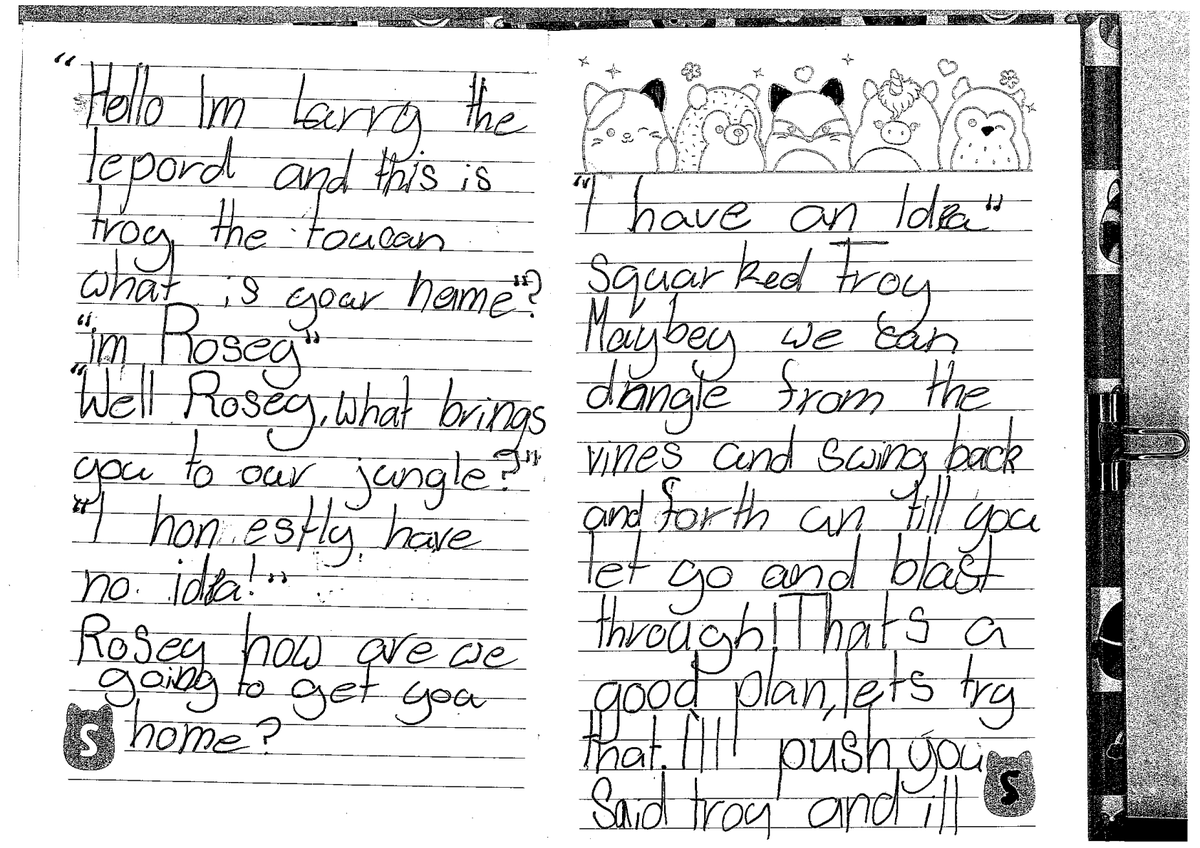 "Hello Im Larry the
lepord and this is
troy the toucan
what is your name"?
"im Rosey"
"Well Rosey, what brings
you to our jungle?"
"I hon estly have
no idea!"
Rosey how are we
going to get you
home?
S
"I have an Idea"
squarked Troy
Maybey we can
dangle from the
vines and swing back
and forth un till you
let go and blast
through! Thats a
good plan, lets try
that. I'll push you
Said troy and ill
S